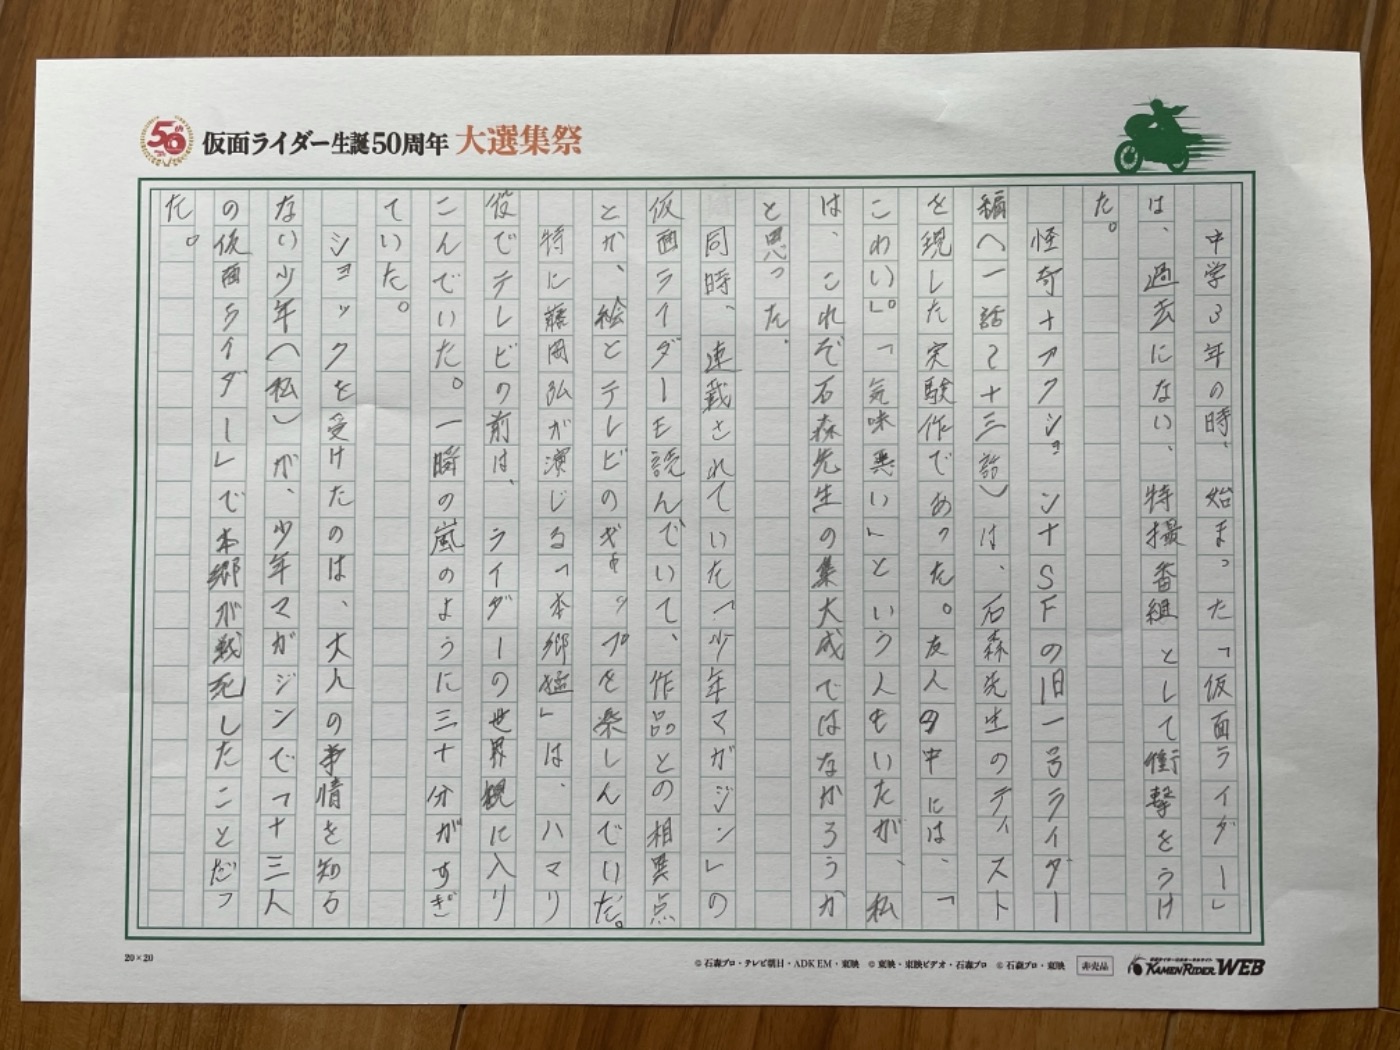 50th
仮面ライダー生誕50周年 大選集祭
中学3年の時、始まった「仮面ライダー」
は、過去にない、特撮番組として衝撃をうけ
た。
怪奇+アクション+SFの旧一号ライダー
編へ一話〜十三話)は、石森先生のテイスト
を現した実験作であった。友人の中には、「
こわい」。「気味悪い」という人もいたが、私
は、これぞ石森先生の集大成ではなかろうか
と思った。
同時、連載されていた「少年マガジン」の
仮面ライダーモ読んでいて、作品との相異点
とか、絵とテレビのギャップを楽しんでいた。
特に藤岡弘が演じる「本郷猛」は、ハマリ
役でテレビの前は、ライダーの世界観に入り
こんでいた。一瞬の嵐のように三十分がすぎ
ていた。
ショックを受けたのは、大人の事情を知る
ない少年(私)が、少年マガジンで「十三人
の仮面ライダー」で本郷が戦死したことだっ
た。
20×20
©石森プロ・テレビ朝日・ADK EM・東映 ©東映・東映ビデオ・石森プロ ©石森プロ・東映
非売品
KAMEN RIDER WEB